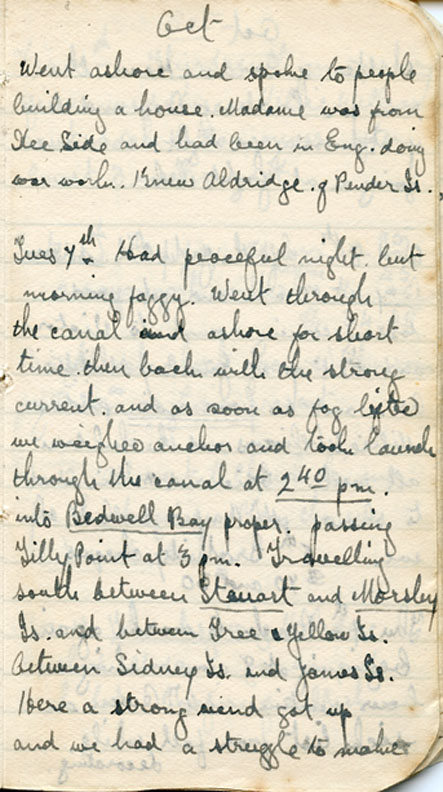 Oct
Went ashore and spoke to people
building a house. Madame was from
Dee Side and had been in Eng. doing
war work. Knew Aldridge. of Pender Is.
Tues 7th. Had peaceful night. but
morning foggy. Went through
the canal and ashore for short
time. then back with the strong
current. and as soon as fog lifted
we weighed anchor and took launch
through the canal at 2 40 pm.
into Bedwell Bay proper. passing
Tilly Point at 3 pm. Travelling
south between Stewart and Morsley
Is. and between Tree & Yellow Is.
between Sidney Is. and James Is.
Here a strong wind got up
and we had a struggle to make